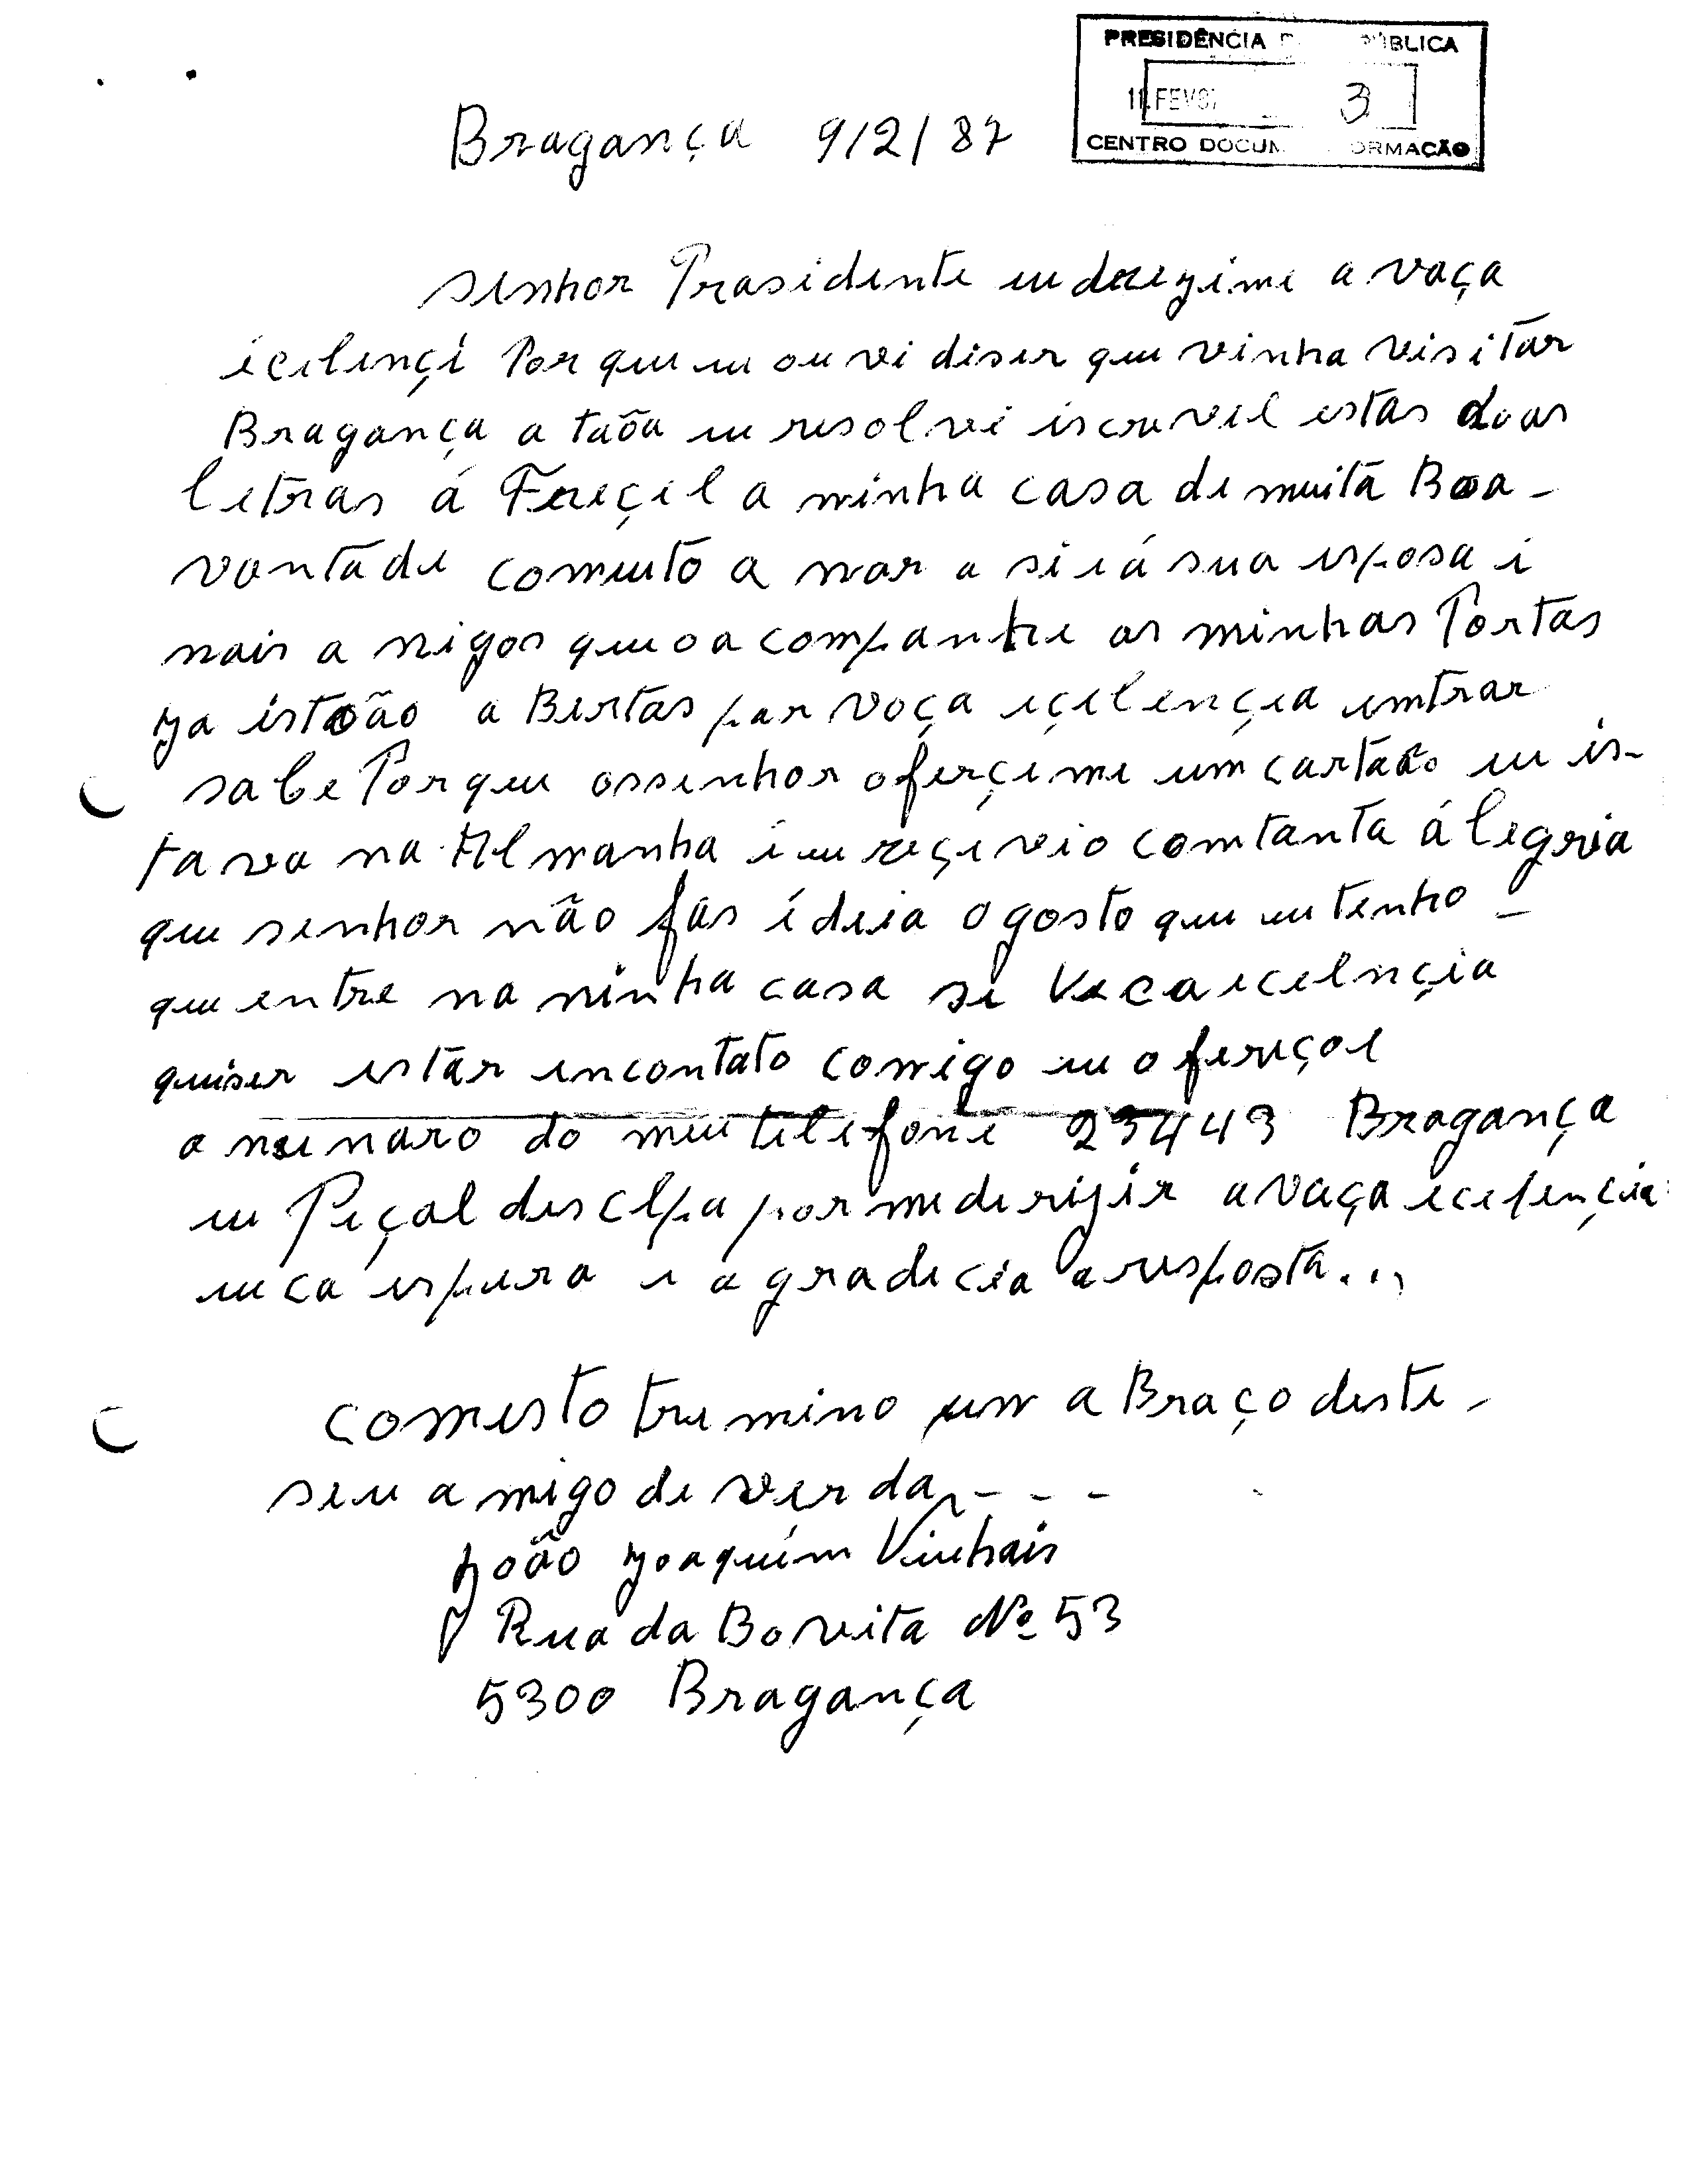 PRESIDÊNCIA D PÚBLICA
11 FEV 87 3
CENTRO DOCUM ORMAÇÃO
Bragança 9/2/87
senhor Prasidente eu derezime a vaça
ècelençi Por que eu ou vi diser que vinha visitar
Bragança a tãõa eu resolvi iscrevel estas duas
letras á Freçel a minha casa de muita Boa-
vontade comuito a mar a si e á sua esposa i
mais a migos que o a companhe as minhas Portas
ja istaõão a Bertas par voça eçelençia emtrar
sabe Por que ossenhor oferçeme um cartão eu is-
tava na Almanha i eu reçevio comtanta álegria
que senhor não fas ideia o gosto que eu tenho-
que entre na minha casa se Vaca ecelnçia
quiser estar encontato comigo eu o fereçoe
o numaro do meu telefone 23443 Bragança
eu Peçal desclpa por mederijir a vaça ecelençia
eu ca espero e a gradecia a resposta...
comesto tremino um a Braço deste-
seu a migo de verda - - -
João Joaquim Vinhais
Rua da Bovita Nº 53
5300 Bragança